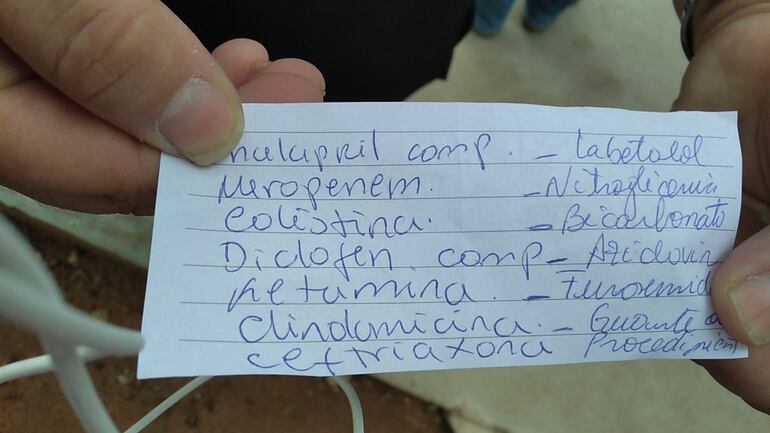 nalapril comp. - Labetolol
Meropenem. - Nitroglicerin
Colistina. - Bicarbonato
Diclofen comp - Aziclovir
Ketamina. - Furosemid
Clindamicina. - Guante d
Ceftriaxona Procedimien